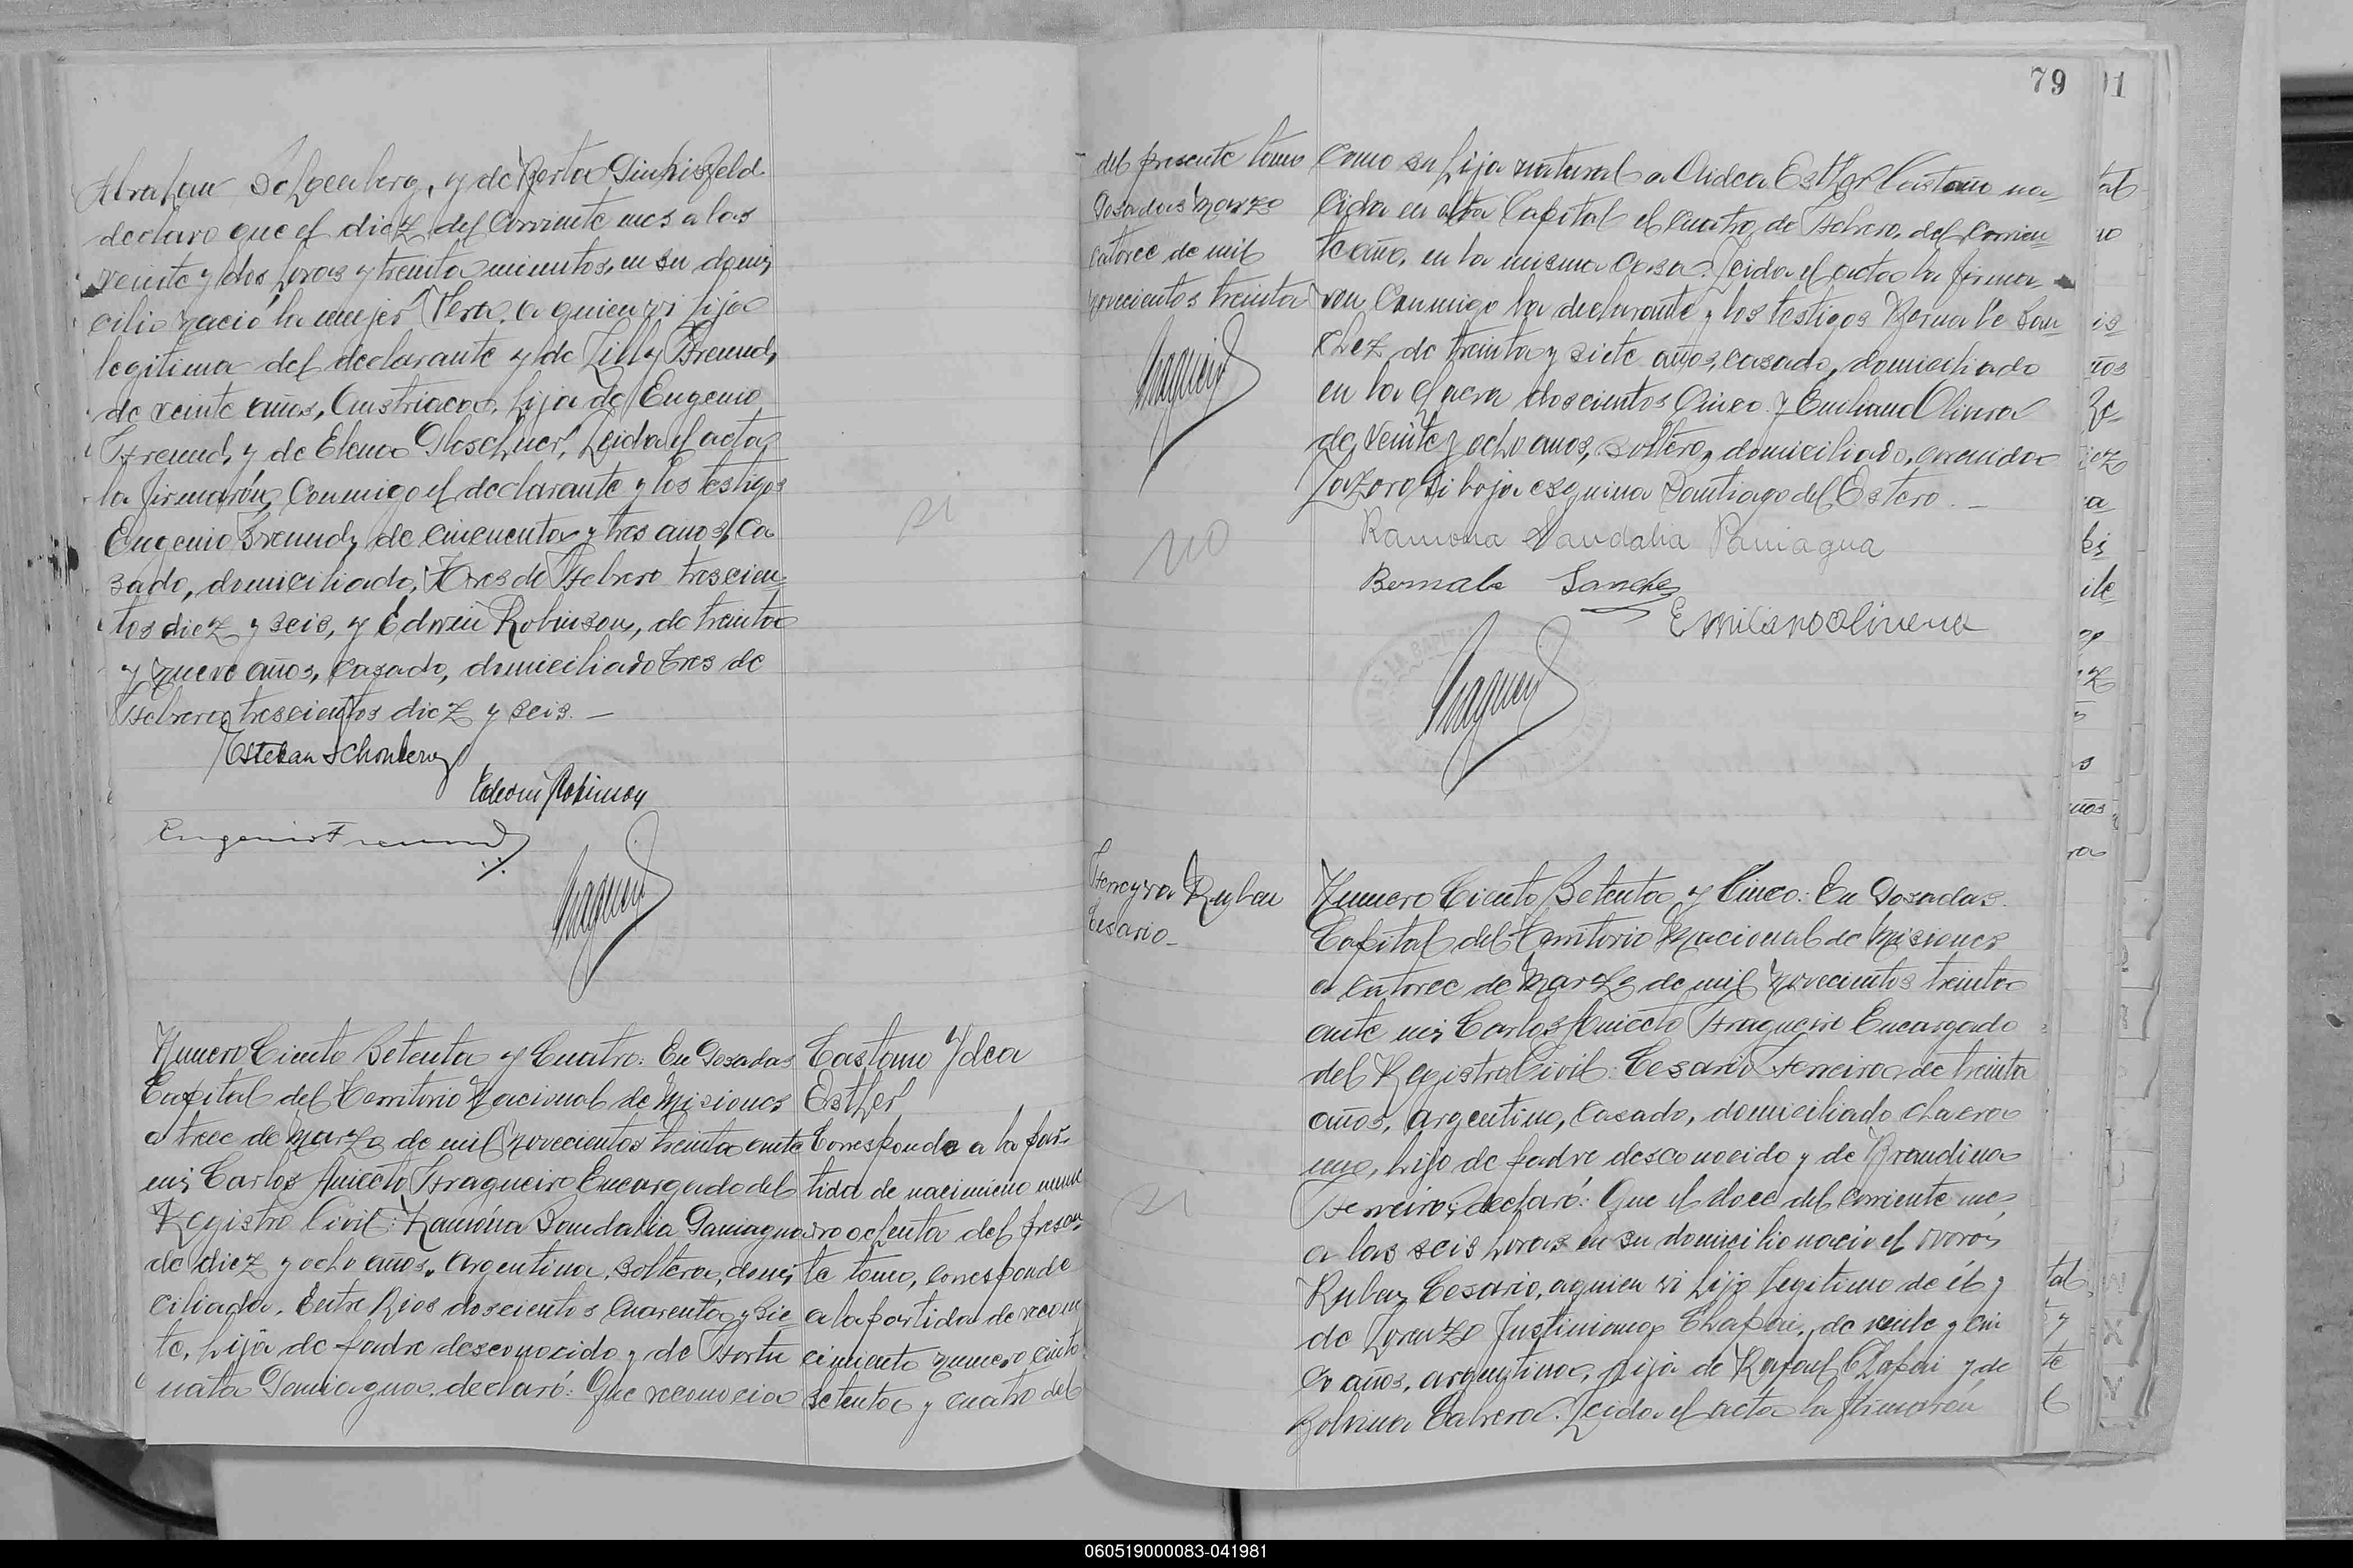 Abrahan Schoenberg, y de Berta
declaro que el diez del corriente mes a las
veinte y dos horas y treinta minutos, en su domi
cilio nació la mujer Vera, a quien vi hija
legitima del declarante y de Lilly Freund,
de veinte años, Austriaca, hija de Eugenio
Freund, y de Elena Leida el acta
la firmarón, conmigo el declarante y los testigos
Eugenio Freund, de cincuenta y tres anos, ca
sado, domiciliado, Tres de Febrero trescien=
tos diez y seis, y Edwin Robinson, de treinta
y nueve años, casado, domiciliado tres de
Febrero trescientos diez y seis. —
Esteban Schonberg
Edwin Robinson
Eugenio Freund
si
Numero Ciento Setenta y Cuatro: En Posadas
Capital del Territorio Nacional de Misiones
a trece de Marzo de mil novecientos treinta ante
mi; Carlos Aniceto Fragueiro Encargado del
Registro Civil: Ramóna Vandalia Paniagua
de diez y ocho años, argentina, soltera, domi
ciliada, Entre Rios doscientos cuarenta y sie=
te, hija de padre desconocido y de Fortu
nata Paniagua, declaró: Que reconocia
Castano Ydea
Esther
Corresponde a la par-
tida de nacimieno nume
ro ochenta del presen
te tomo, corresponde
a la partida de recono
cimiento numero ciento
setenta y cuatro del
79
del presente tomo
Posadas Marzo
catorce de mil
novecientos treinta
no
como su hija natural a Aidea Esther Castaño na
cida en esta Capital el cuatro de Febrero, del corrien
te año, en la misma casa. Leida el acta la firma
ron conmigo la declarante y los testigos Bernabé San
chez, de treinta y siete años, casado, domiciliado
en la chacra doscientos cinco y Emiliano Olivera
de veinte y ocho anos, soltero, domiciliado, avenida
Lazaro Giboja esquina Santiago del Estero. —
Ramona Vandalia Paniagua
Bernabe Sanchez
Emiliano Olivera
Ferreyra Ruben
Cesario_
si
Numero Ciento Setenta y Cinco: En Posadas.
Capital del Territorio Nacional de Misiones
a catorce de Marzo de mil novecientos treinta
ante mi; Carlos Aniceto Fragueiro Encargado
del Registro Civil: Cesario Ferreira de treinta
años, argentino, casado, domiciliado chacra
uno, hijo de padre desconocido y de Brandina
Ferreira, declaró: Que el doce del corriente mes
a las seis horas en su domicilio nació el varón
Ruben Cesario, a quien vi hijo legitimo de él y
de Lorenza Justiniana Chapai, de veinte y cin
co años, argentina, hija de Rafael Chapai y de
Cabrera. Leida el acta la firmarón
060519000083-041981